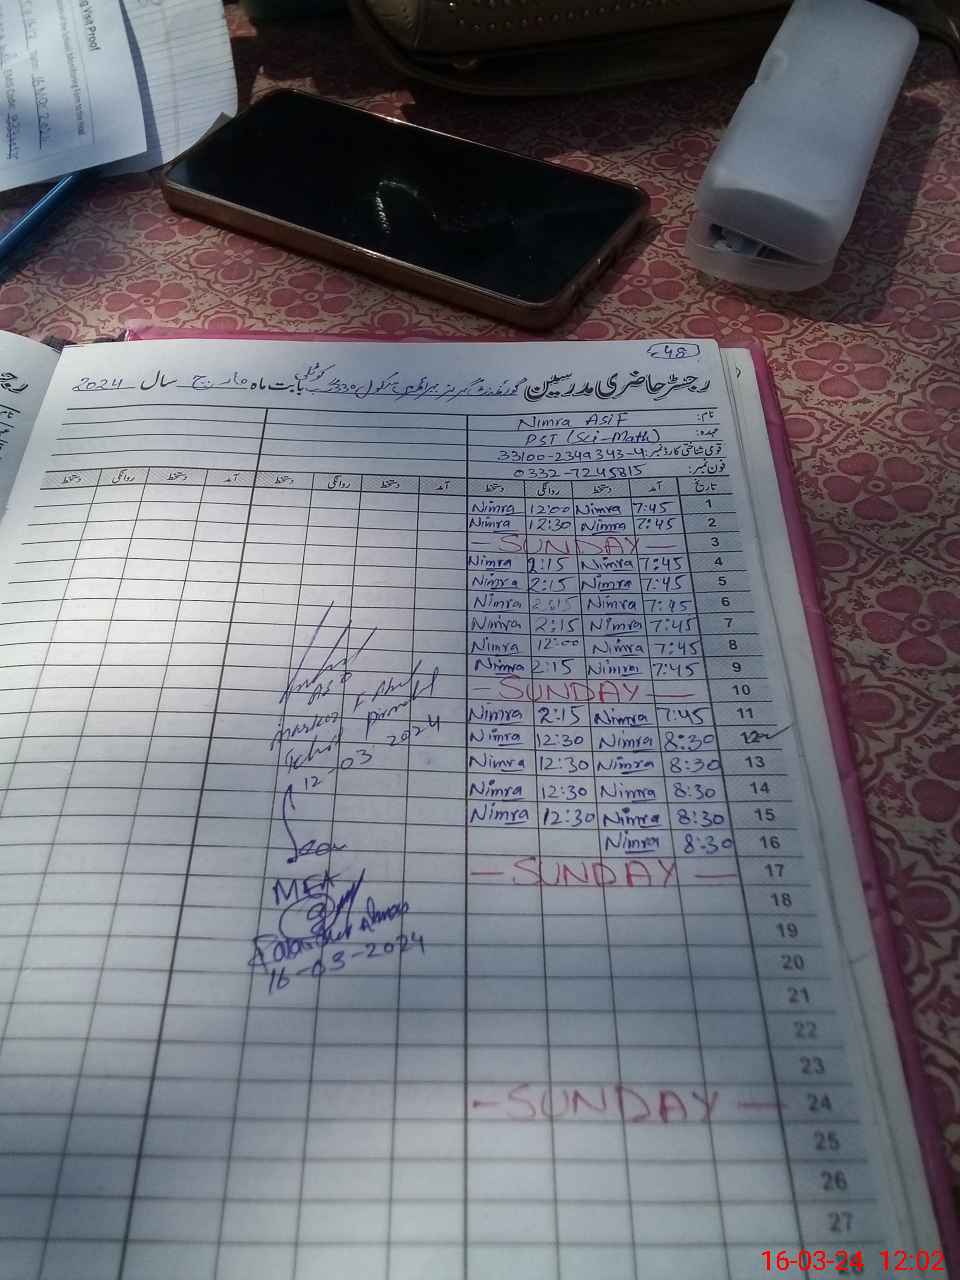 Visit Proof
48
رجسٹر حاضری مدرسین گورنمنٹ گرلز پرائمری سکول 330 بابت ماہ مارچ سال 2024
نام: Nimra Asif
عہدہ: PST (Sci-Math)
قومی شناختی کارڈ نمبر: 33100-2349343-4
فون نمبر: 0332-7245815
تاریخ آمد دستخط روانگی دستخط آمد دستخط روانگی دستخط آمد دستخط روانگی دستخط
Nimra 12:00 Nimra 7:45 1
Nimra 12:30 Nimra 7:45 2
- SUNDAY - 3
Nimra 2:15 Nimra 7:45 4
Nimra 2:15 Nimra 7:45 5
Nimra 2:15 Nimra 7:45 6
Nimra 2:15 Nimra 7:45 7
Nimra 12:00 Nimra 7:45 8
Nimra 2:15 Nimra 7:45 9
- SUNDAY - 10
Nimra 2:15 Nimra 7:45 11
Nimra 12:30 Nimra 8:30 12
Nimra 12:30 Nimra 8:30 13
Nimra 12:30 Nimra 8:30 14
Nimra 12:30 Nimra 8:30 15
Nimra 8:30 16
- SUNDAY - 17
18
19
20
21
22
23
- SUNDAY - 24
25
26
27
12-03-2024
MEA
16-03-2024
16-03-24 12:02